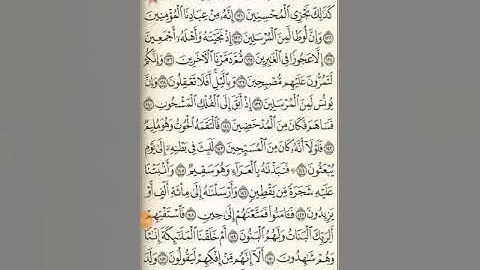 كَذَٰلِكَ نَجْزِى ٱلْمُحْسِنِينَ ١٣١ إِنَّهُۥ مِنْ عِبَادِنَا ٱلْمُؤْمِنِينَ
١٣٢ وَإِنَّ لُوطًا لَّمِنَ ٱلْمُرْسَلِينَ ١٣٣ إِذْ نَجَّيْنَٰهُ وَأَهْلَهُۥٓ أَجْمَعِينَ
١٣٤ إِلَّا عَجُوزًا فِى ٱلْغَٰبِرِينَ ١٣٥ ثُمَّ دَمَّرْنَا ٱلْءَاخَرِينَ ١٣٦ وَإِنَّكُمْ
لَتَمُرُّونَ عَلَيْهِم مُّصْبِحِينَ ١٣٧ وَبِٱلَّيْلِ أَفَلَا تَعْقِلُونَ ١٣٨ وَإِنَّ
يُونُسَ لَمِنَ ٱلْمُرْسَلِينَ ١٣٩ إِذْ أَبَقَ إِلَى ٱلْفُلْكِ ٱلْمَشْحُونِ ١٤٠
فَسَاهَمَ فَكَانَ مِنَ ٱلْمُدْحَضِينَ ١٤١ فَٱلْتَقَمَهُ ٱلْحُوتُ وَهُوَ مُلِيمٌ
١٤٢ فَلَوْلَآ أَنَّهُۥ كَانَ مِنَ ٱلْمُسَبِّحِينَ ١٤٣ لَلَبِثَ فِى بَطْنِهِۦٓ إِلَىٰ يَوْمِ
يُبْعَثُونَ ١٤٤ فَنَبَذْنَٰهُ بِٱلْعَرَآءِ وَهُوَ سَقِيمٌ ١٤٥ وَأَنۢبَتْنَا
عَلَيْهِ شَجَرَةً مِّن يَقْطِينٍ ١٤٦ وَأَرْسَلْنَٰهُ إِلَىٰ مِا۟ئَةِ أَلْفٍ أَوْ
يَزِيدُونَ ١٤٧ فَـَٔامَنُوا۟ فَمَتَّعْنَٰهُمْ إِلَىٰ حِينٍ ١٤٨ فَٱسْتَفْتِهِمْ
أَلِرَبِّكَ ٱلْبَنَاتُ وَلَهُمُ ٱلْبَنُونَ ١٤٩ أَمْ خَلَقْنَا ٱلْمَلَٰٓئِكَةَ إِنَٰثًا
وَهُمْ شَٰهِدُونَ ١٥٠ أَلَآ إِنَّهُم مِّنْ إِفْكِهِمْ لَيَقُولُونَ ١٥١ وَلَدَ